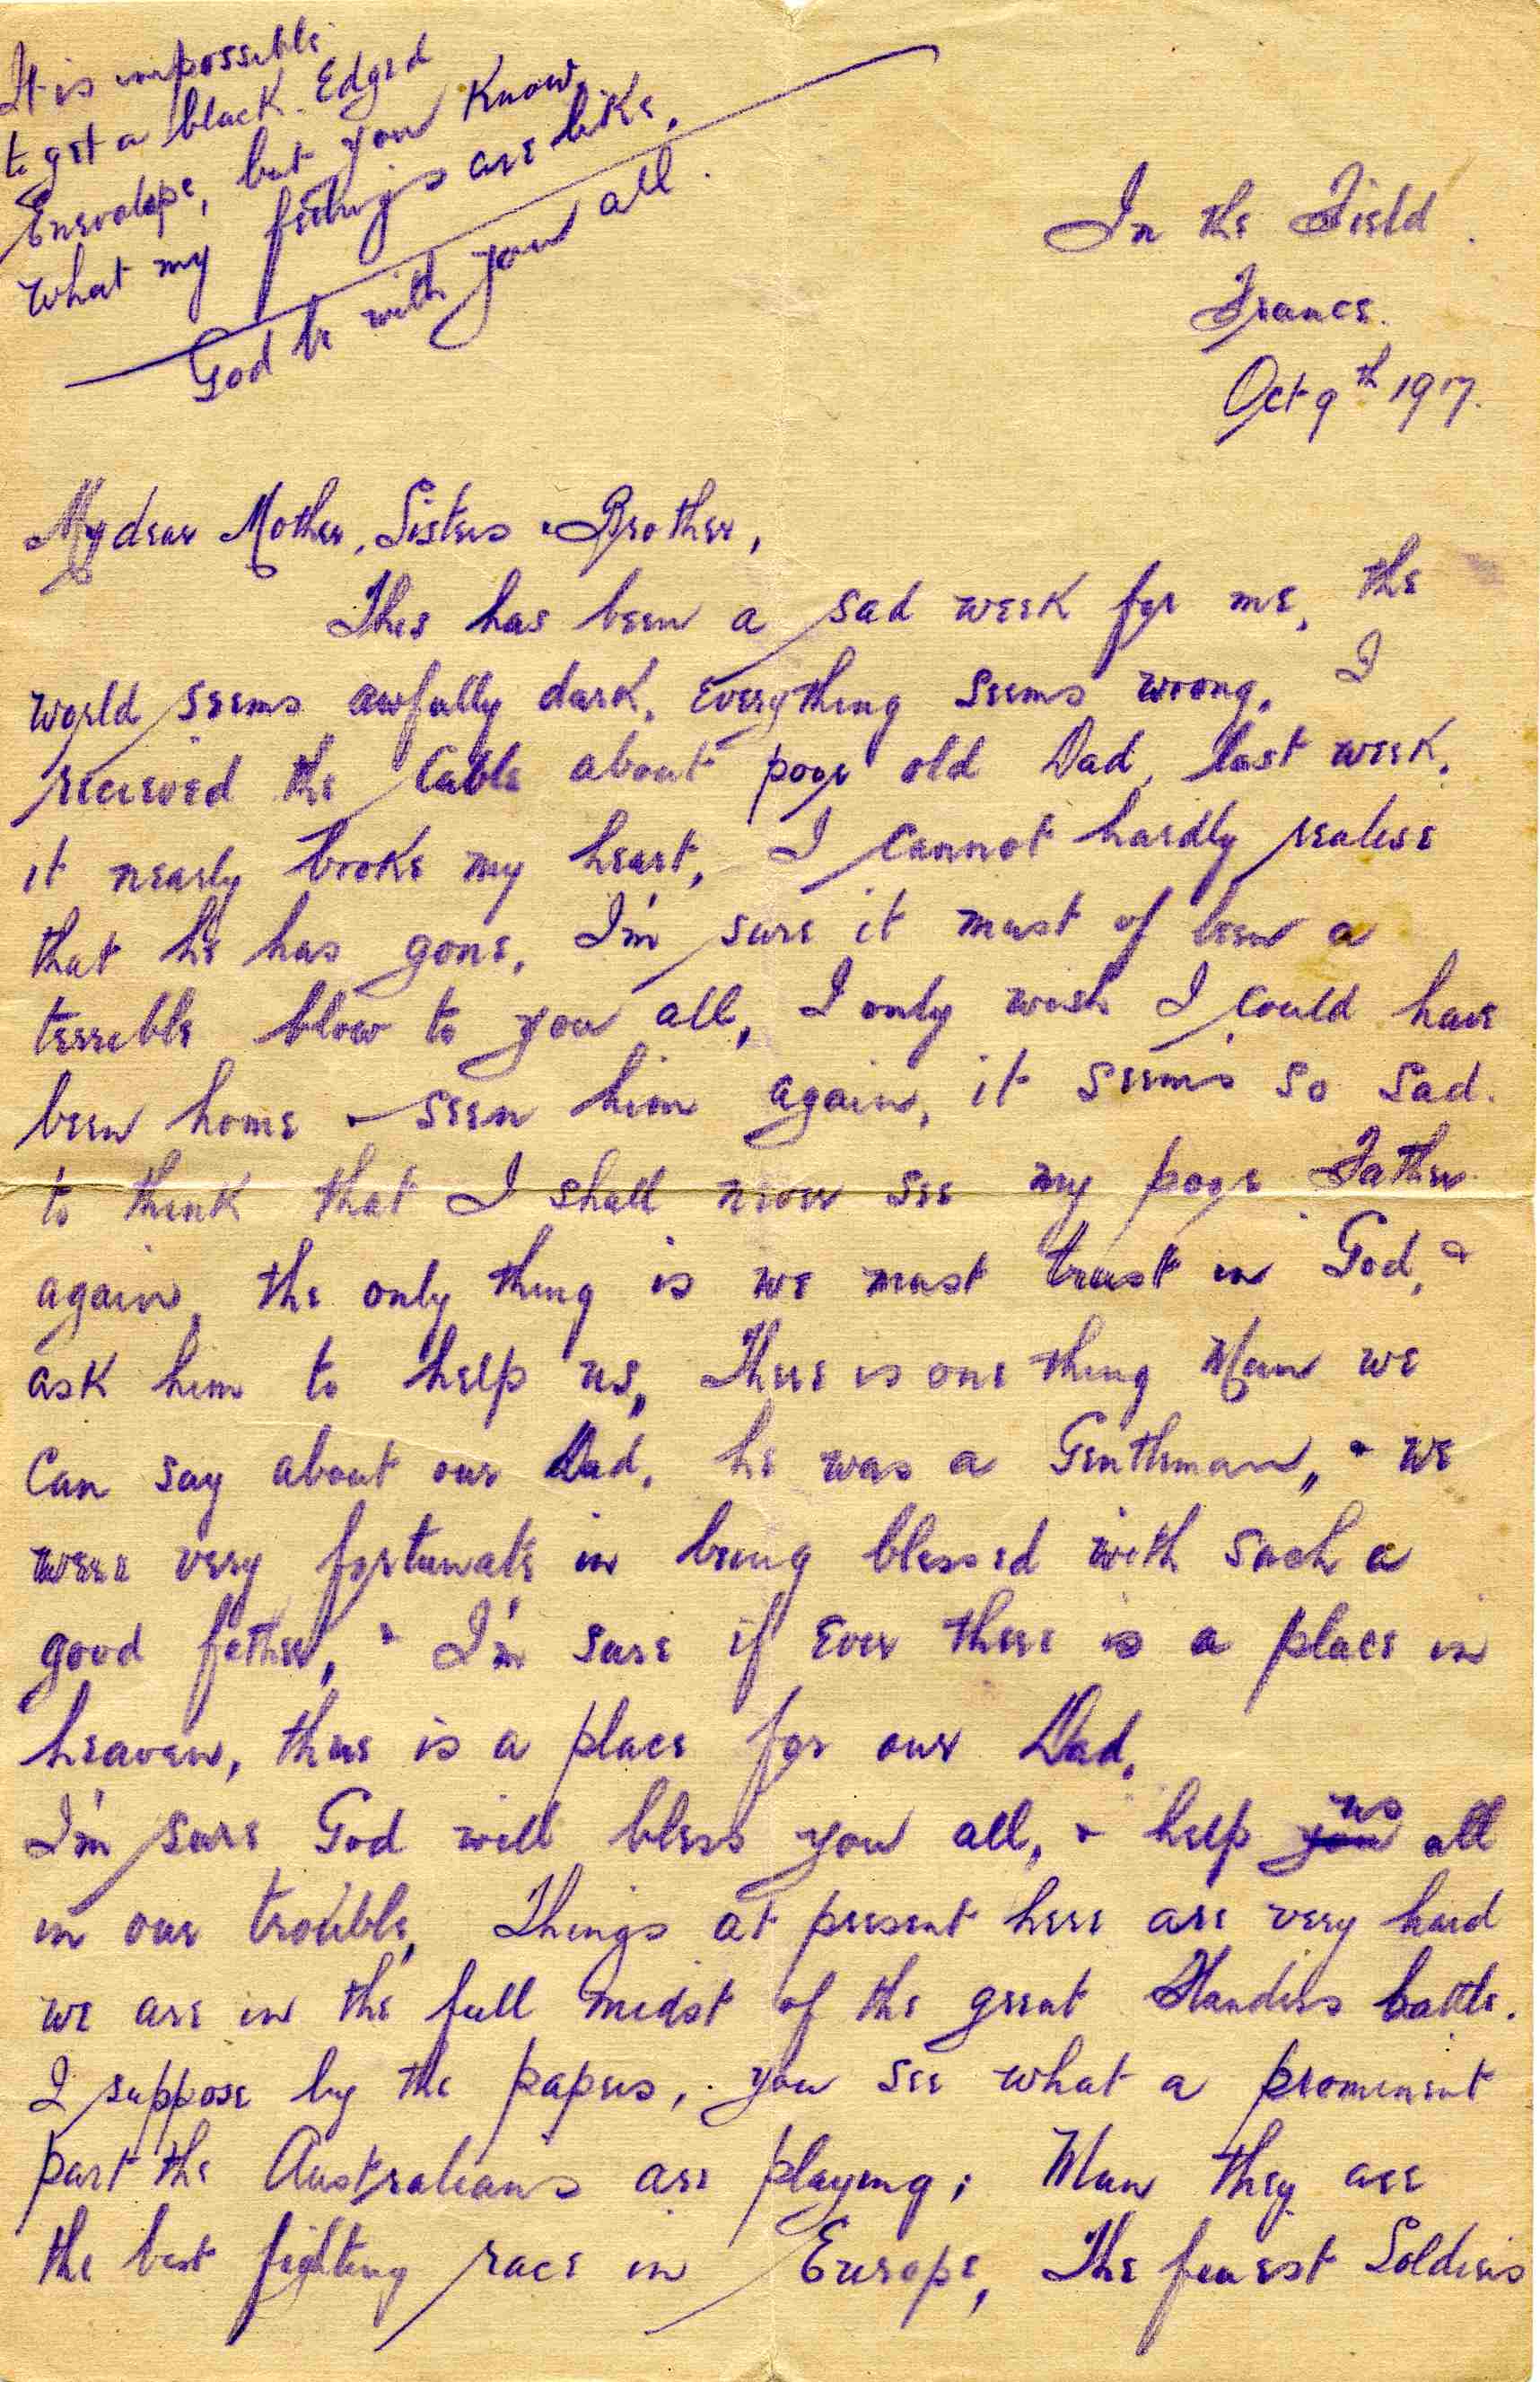 It is impossible
to get a black-Edged
Envelope, but you Know
what my feelings are like.
God be with you all.
In the Field.
France.
Oct 9th 1917.
My dear Mother, Sisters & Brother,
This has been a sad week for me, the
world seems awfully dark, Everything seems wrong, I
recieved the Cable about poor old Dad, last week,
it nearly broke my heart, I cannot hardly realise
that he has gone, I'm sure it must of been a
terrible blow to you all, I only wish I could have
been home & seen him again, it seems so sad.
to think that I shall never see my poor Father
again, the only thing is we must trust in God, &
ask him to help us, There is one thing Mum we
Can say about our Dad, he was a Gentleman, & we
were very fortunate in being blessed with such a
good father, & I'm sure if Ever there is a place in
heaven, there is a place for our Dad.
I'm sure God will bless you all, & help you us all
in our trouble, Things at present here are very hard
we are in the full midst of the great Flanders battle.
I suppose by the papers, you see what a prominent
part the Australians are playing; Mum they are
the best fighting race in Europe, The finest Soldiers